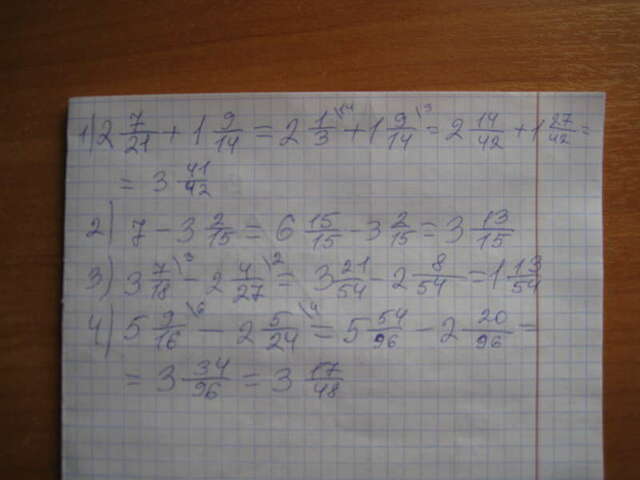 1) 2 7/21 + 1 9/14 = 2 1/3 \14 + 1 9/14 \3 = 2 14/42 + 1 27/42 =
= 3 41/42
2) 7 - 3 2/15 = 6 15/15 - 3 2/15 = 3 13/15
3) 3 7/18 \3 - 2 4/27 \2 = 3 21/54 - 2 8/54 = 1 13/54
4) 5 9/16 \6 - 2 5/24 \4 = 5 54/96 - 2 20/96 =
= 3 34/96 = 3 17/48